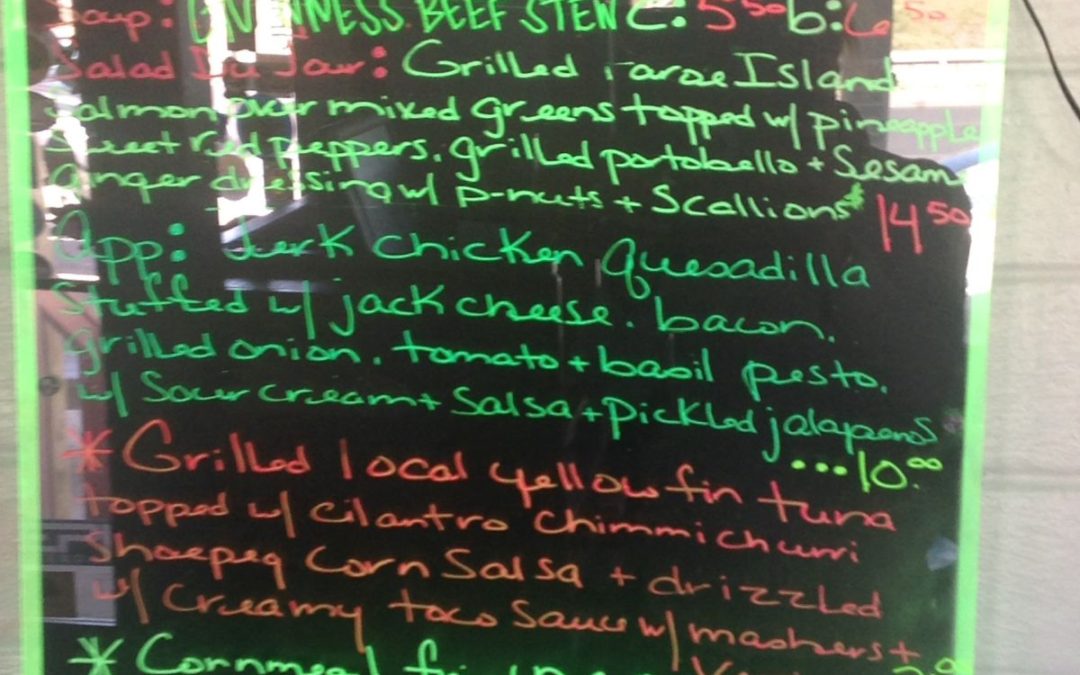 Soup: GUINNESS BEEF STEW C: 5⁵⁰ b: 6⁵⁰
Salad Du Jour: Grilled Faroe Island
Salmon over mixed greens topped w/ pineapple
Sweet Red Peppers, grilled portobello + Sesame
Ginger dressing w/ p-nuts + Scallions* 14⁵⁰
App: Jerk Chicken Quesadilla
Stuffed w/ jack cheese, bacon,
grilled onion, tomato + basil pesto,
w/ Sour cream + Salsa + Pickled jalapenos
...10.⁰⁰
* Grilled local yellow fin tuna
topped w/ cilantro chimmichurri
Shoepeg Corn Salsa + drizzled
w/ creamy taco Sauce w/ mashers +
* Cornmeal